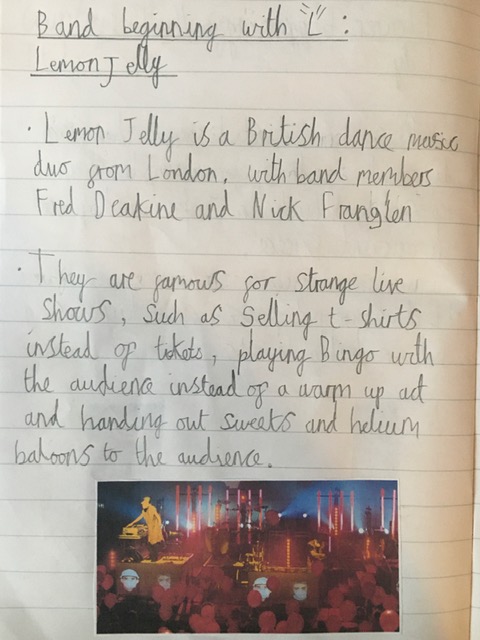 Band beginning with "L":
Lemon Jelly
· Lemon Jelly is a British dance music
duo from London, with band members
Fred Deakine and Nick Franglen
· They are famous for strange live
shows, such as selling t-shirts
instead of tickets, playing Bingo with
the audience instead of a warm up act
and handing out sweets and helium
baloons to the audience.